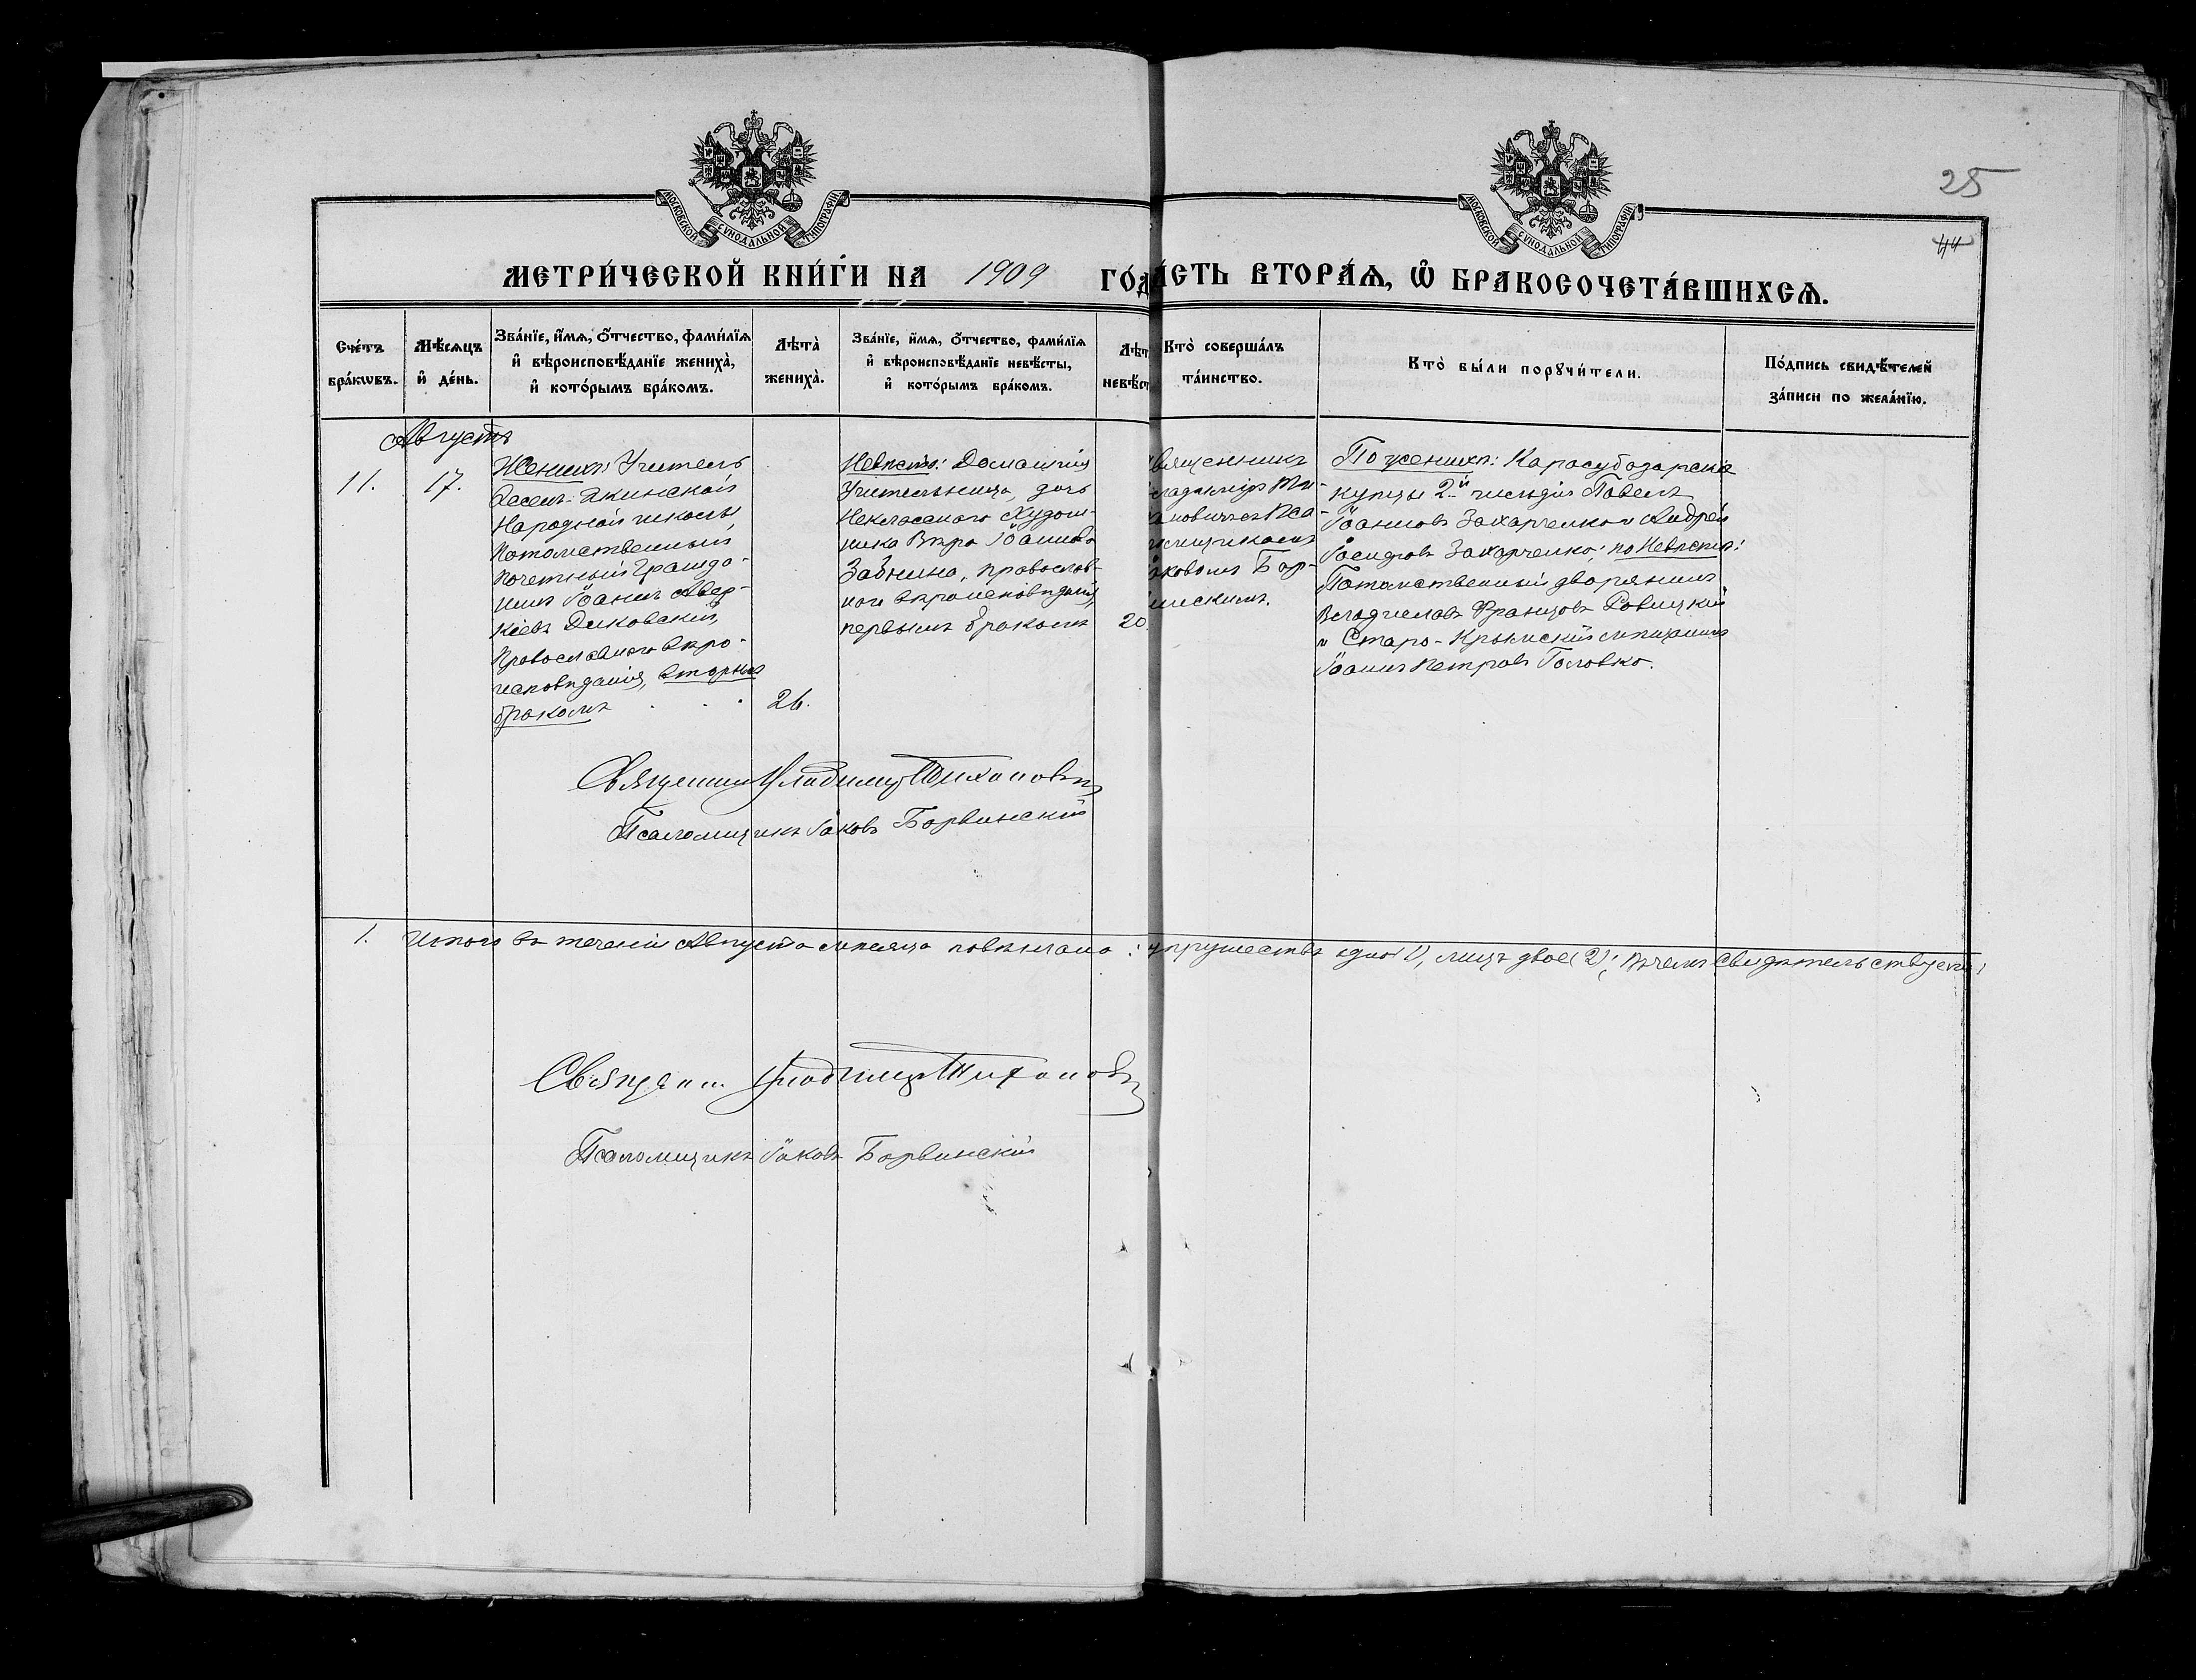 МОСКОВСКОЙ СѴНОДАЛЬНОЙ ТИПОГРАФІИ
МОСКОВСКОЙ СѴНОДАЛЬНОЙ ТИПОГРАФІИ
25
44
МЕТРИ́ЧЕСКОЙ КНИ́ГИ НА 1909 ГО́ДА
А́СТЬ ВТОРА́Ѧ, Ѽ БРАКОСОЧЕТА́ВШИХСѦ.
Сче́тъ бра́кѡвъ.
Мѣ́сяцъ и҆ де́нь.
Зва́нїе, и҆́мѧ, ѻ҆́тчество, фами́лїѧ и҆ вѣроисповѣ́данїе жениха̀, и҆ кото́рымъ бра́комъ.
Лѣта̀ жениха̀.
Зва́нїе, и҆́мѧ, ѻ҆́тчество, фами́лїѧ и҆ вѣроисповѣ́данїе невѣ́сты, и҆ кото́рымъ бра́комъ.
Лѣт невѣ́ст
Кто̀ соверша́лъ та́инство.
Кто̀ бы́ли порꙋчи́тели.
По́дпись свидѣ́телей за́писи по жела́нїю.
Августъ
11.
17.
Женихъ: Учитель
Народной школы,
Потомственный
Почетный Гражда-
нинъ Іоаннъ Авер-
кіевъ Диковскій,
Православнаго вѣро-
исповѣданія, вторымъ
бракомъ
26.
Невѣста: Домашняя
Учительница, дочь
Неклассного Худож-
ника Вѣра Іоаннова
Забнина, православ-
наго вѣроисповѣданія,
первымъ бракомъ
20.
вященникъ
ладиміръ Ти-
хановичъ Пса-
ломщикомъ
аковомъ Бор-
винскимъ.
По женихѣ: Карасубазарскіе
купцы 2-й гильдіи Павелъ
Іоанновъ Захарченко и Андрей
Іосифовъ Захарченко; по Невѣстѣ:
Потомственный дворянинъ
Владиславъ Францовъ Ровицкій
и Старо-Крымскій мѣщанинъ
Іоаннъ Петровъ Головко.
Священникъ Владимиръ Тихановичъ
Псаломщикъ Іаковъ Борвинскій
1. Итого въ теченіи Августа мѣсяца повѣнчано: упружествъ одно (1), лицъ двое (2); въ чемъ свидѣтельствуемъ:
Священн. Владимиръ Тихановичъ
Псаломщикъ Іаковъ Борвинскій